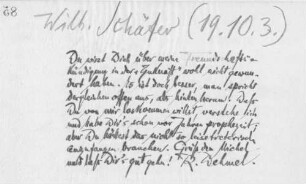 58
Wilh. Schäfer (19.10.3.)
Du wirst Dich über meine Freundschafts-
kündigung in der „Zukunft" wohl nicht gewun-
dert haben. Es ist doch besser, man spricht
dergleichen offen aus, als hintenherum. Daß
Du von mir loskommen willst, verstehe ich
und habe Dir's schon vor Jahren prophezeit;
aber Du hättest das nicht so
anzufangen brauchen. Grüß den Michel
und laß Dir's gut gehn! R. Dehmel.